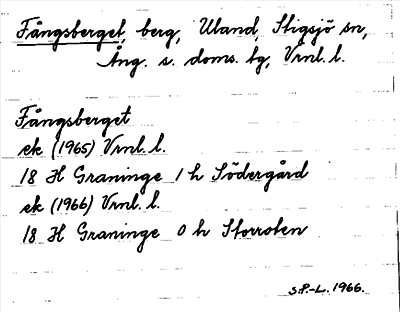 Fångsberget, berg, Uland, Stigsjö sn,
Ång. s. doms. tg, Vrnl. l.
Fångsberget
ek (1965) Vrnl. l.
18 H Graninge 1 h Södergård
ek (1966) Vrnl. l.
18 H Graninge 0 h Storroten
S.P.-L. 1966.